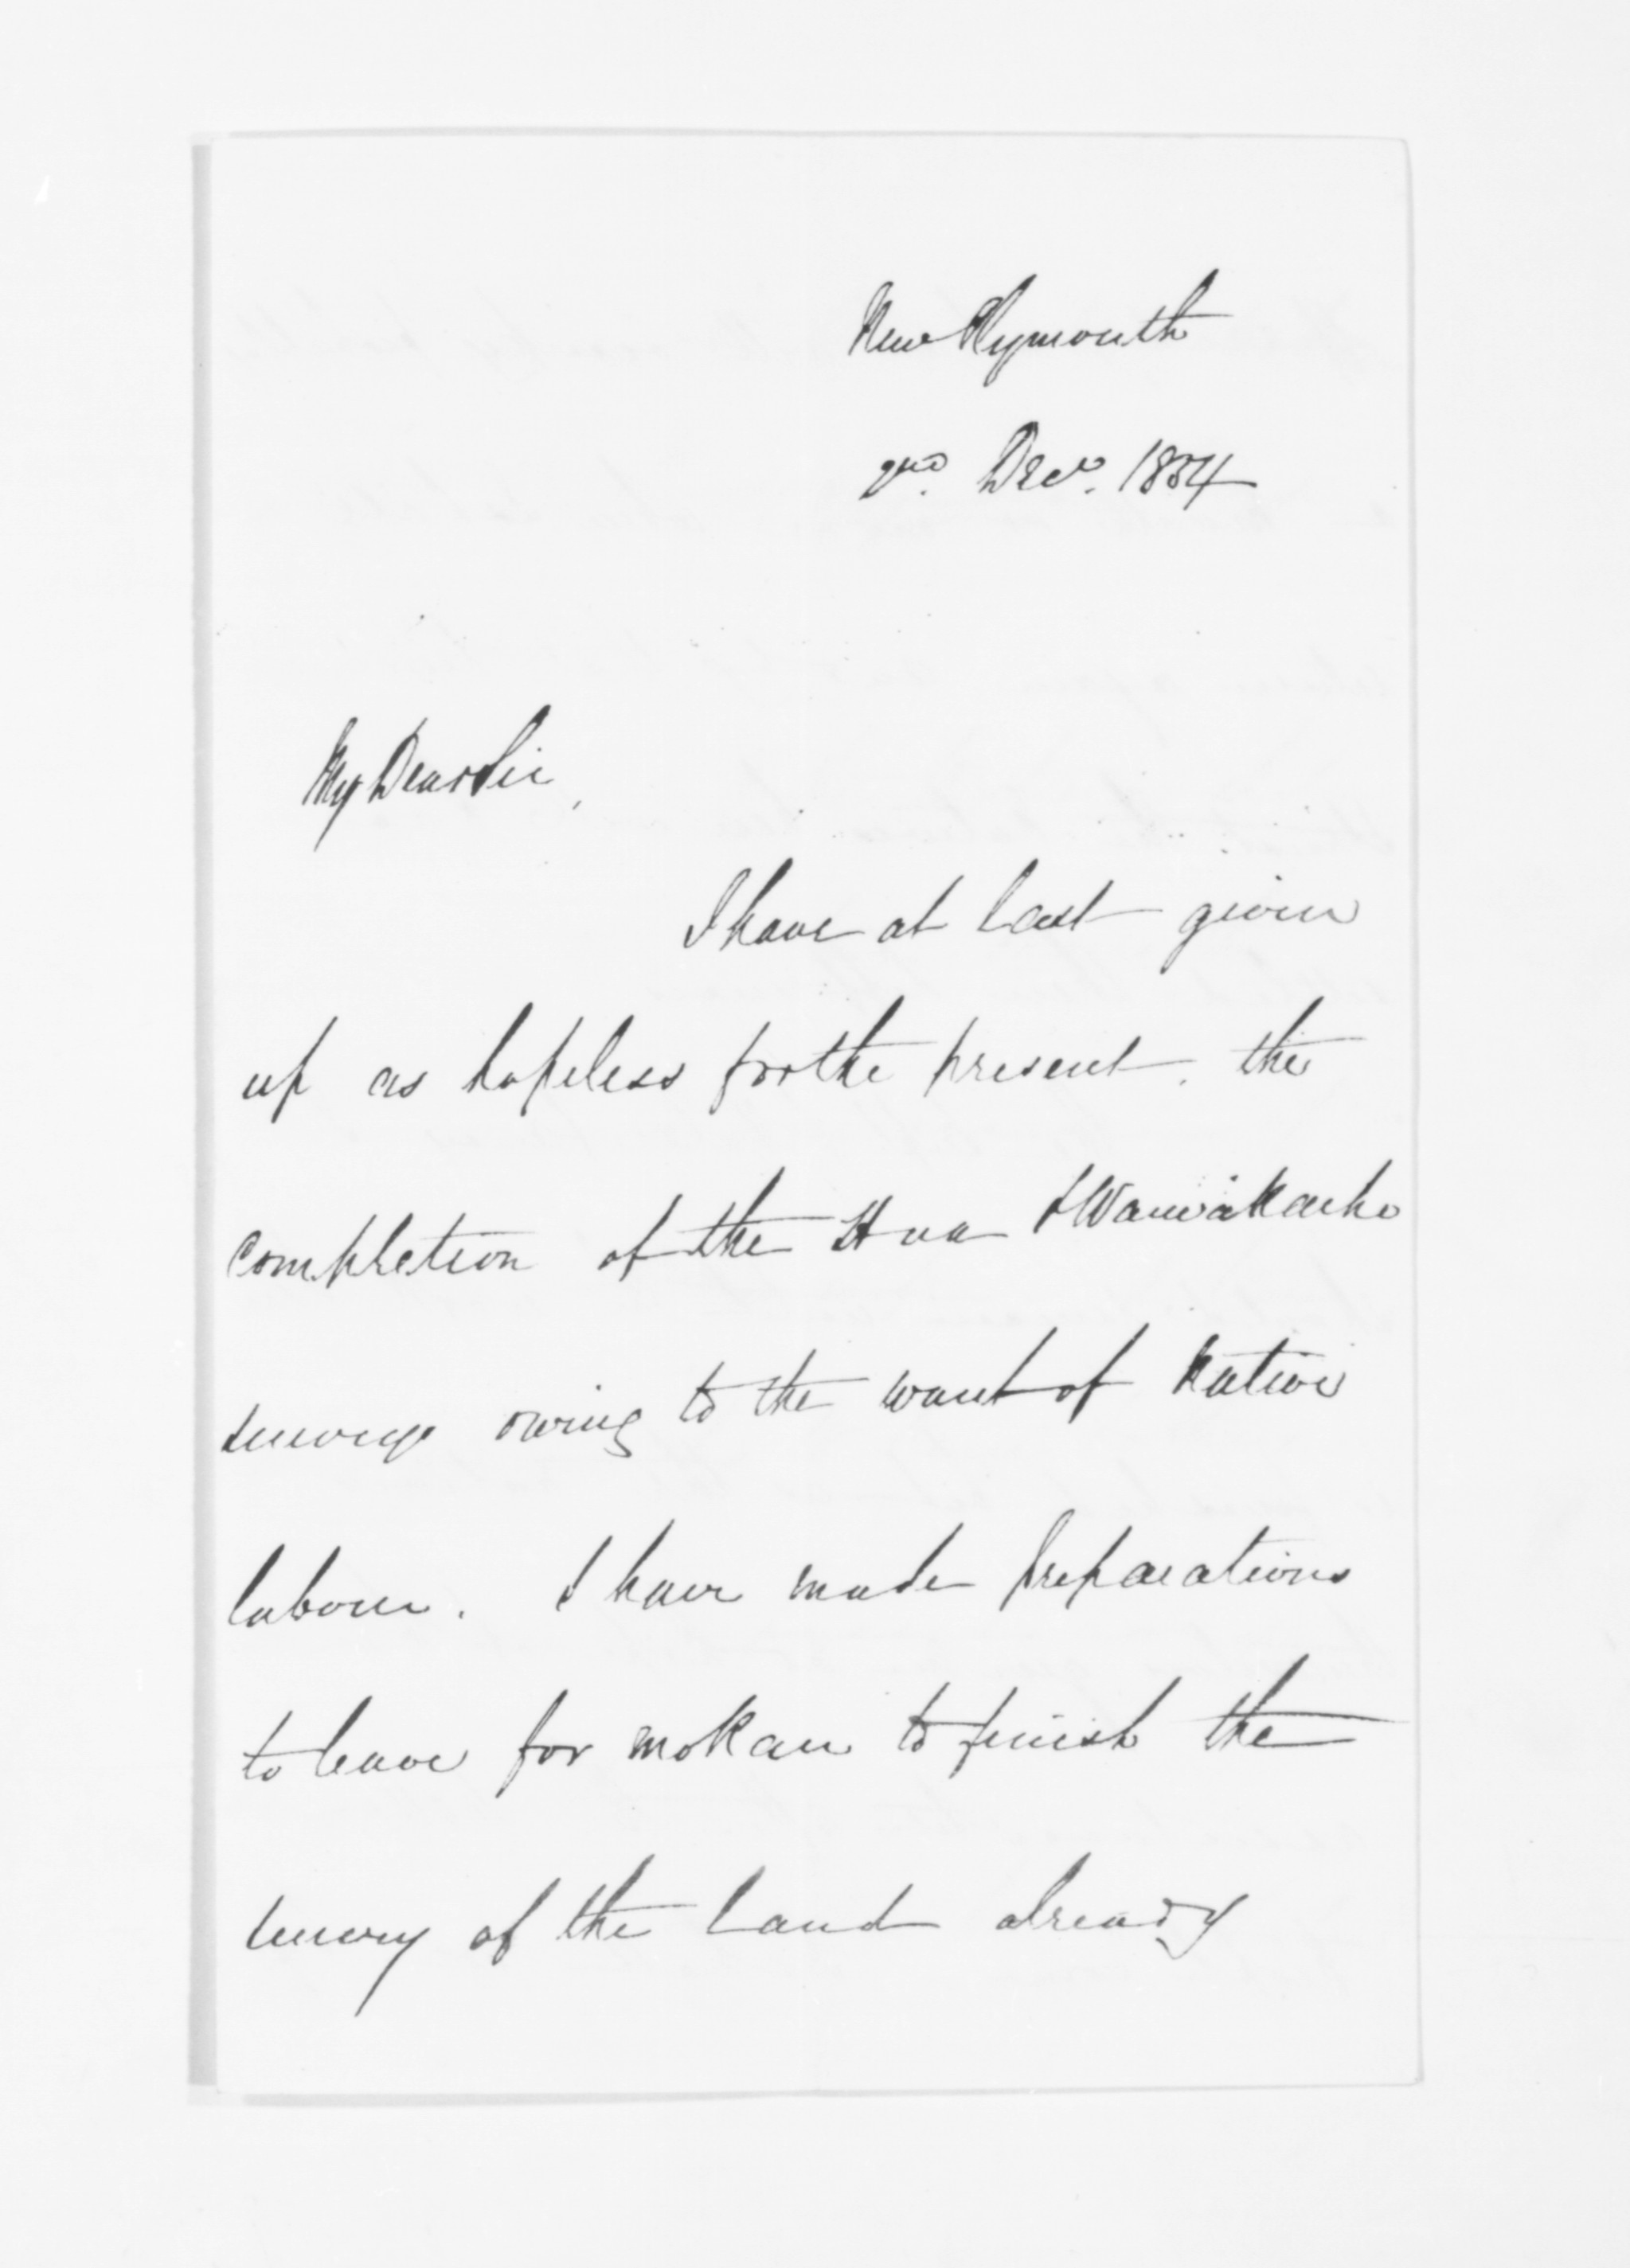 New Plymouth
2nd. Decr. 1854
My Dear Sir,
I have at last given
up as hopeless for the present, the
completion of the Hua & Waiwakaiho
surveys owing to the want of Native
labour. I have made preparations
to leave for Mokau to finish the
survey of the land already